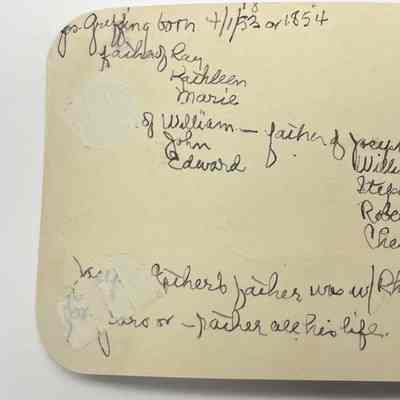 Jos. Griffing born 4/1/1853 or 1854
father of Ray
Kathleen
Marie
of William — father of Joseph
John Willi
Edward Step
Robe
Che
father's father was w/ Rh
years or - father all his life.